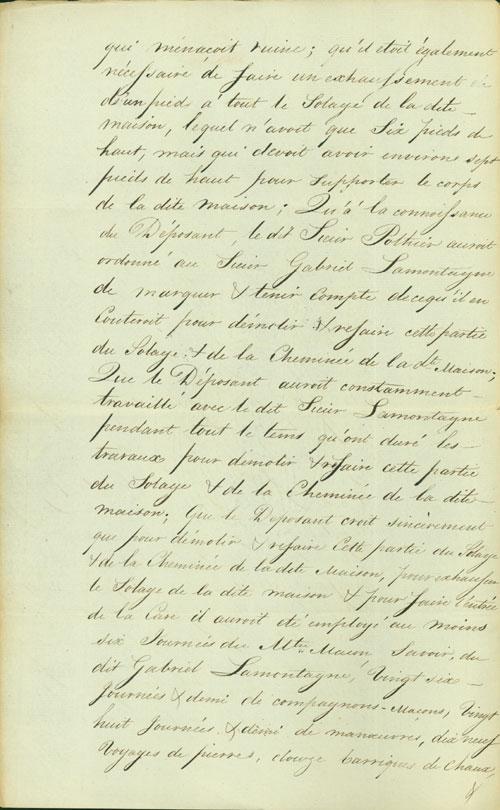 qui menaçoit ruine; qu'il etoit également
nécessaire de faire un exhaussement
d'un pieds à tout le Solage de la dite
maison, lequel n'avoit que Six pieds de
haut, mais qui devoit avoir environs sept
pieds de haut pour supporter le corps
de la dite maison; Qu'à la connoissance
du Déposant, le dit Sieur Pothier auroit
ordonné au Sieur Gabriel Lamontagne
de marquer & tenir Compte de ce qu'il en
Couteroit pour démolir & refaire cette partie
du Solage & de la Cheminée de la dte Maison;
Que le Déposant auroit constamment
travaillé avec le dit Sieur Lamontagne
pendant tout le tems qu'ont duré les
travaux pour démolir & refaire cette partie
du Solage & de la Cheminée de la dite
maison; Que le Deposant croit sincèrement
que pour démolir & refaire Cette partie du Solage
& de la Cheminée de la dite Maison, pour exhausser
le Solage de la dite maison & pour faire l'entrée
de la Cave il auroit été employé au moins
six Journées du Mtre Macon Savoir, du
dit Gabriel Lamontagne, Vingt six
Journées & demi de compagnons-Macons, Vingt
huit Journées & demi de manœuvres, dix neuf
Voyages de pierres, douze barriques de Chaux,
&